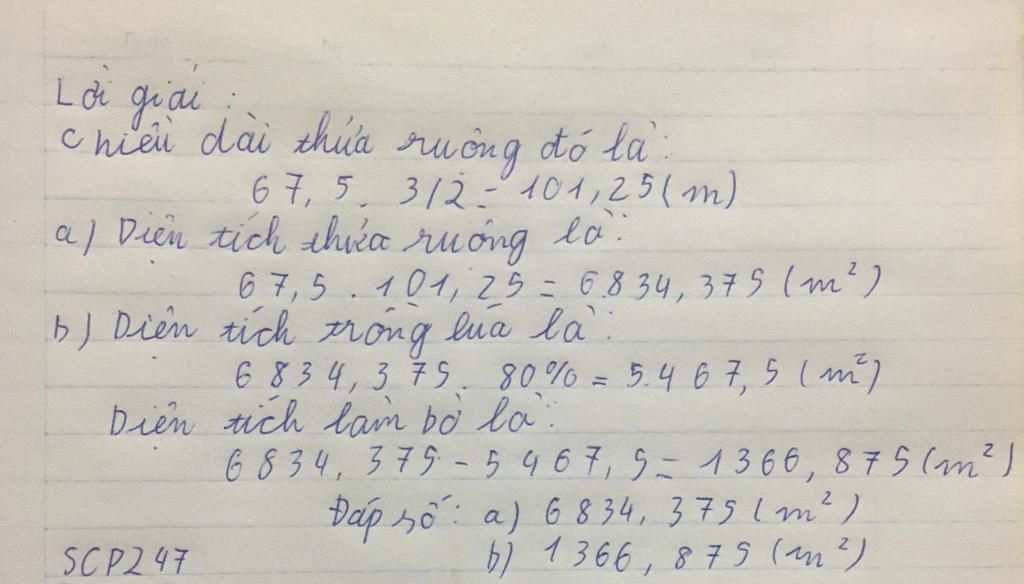 Lời giải :
Chiều dài thửa ruộng đó là :
67,5 . 3/2 = 101,25 (m)
a) Diện tích thửa ruộng là :
67,5 . 101,25 = 6834,375 (m²)
b) Diện tích trồng lúa là :
6834,375 . 80% = 5467,5 (m²)
Diện tích làm bờ là :
6834,375 - 5467,5 = 1366,875 (m²)
Đáp số : a) 6834,375 (m²)
b) 1366,875 (m²)
SCP247